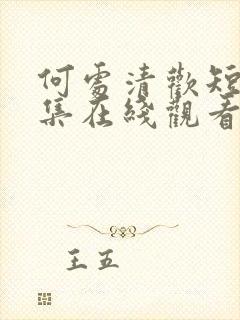 何處清歡短
集在綫觀看
王五